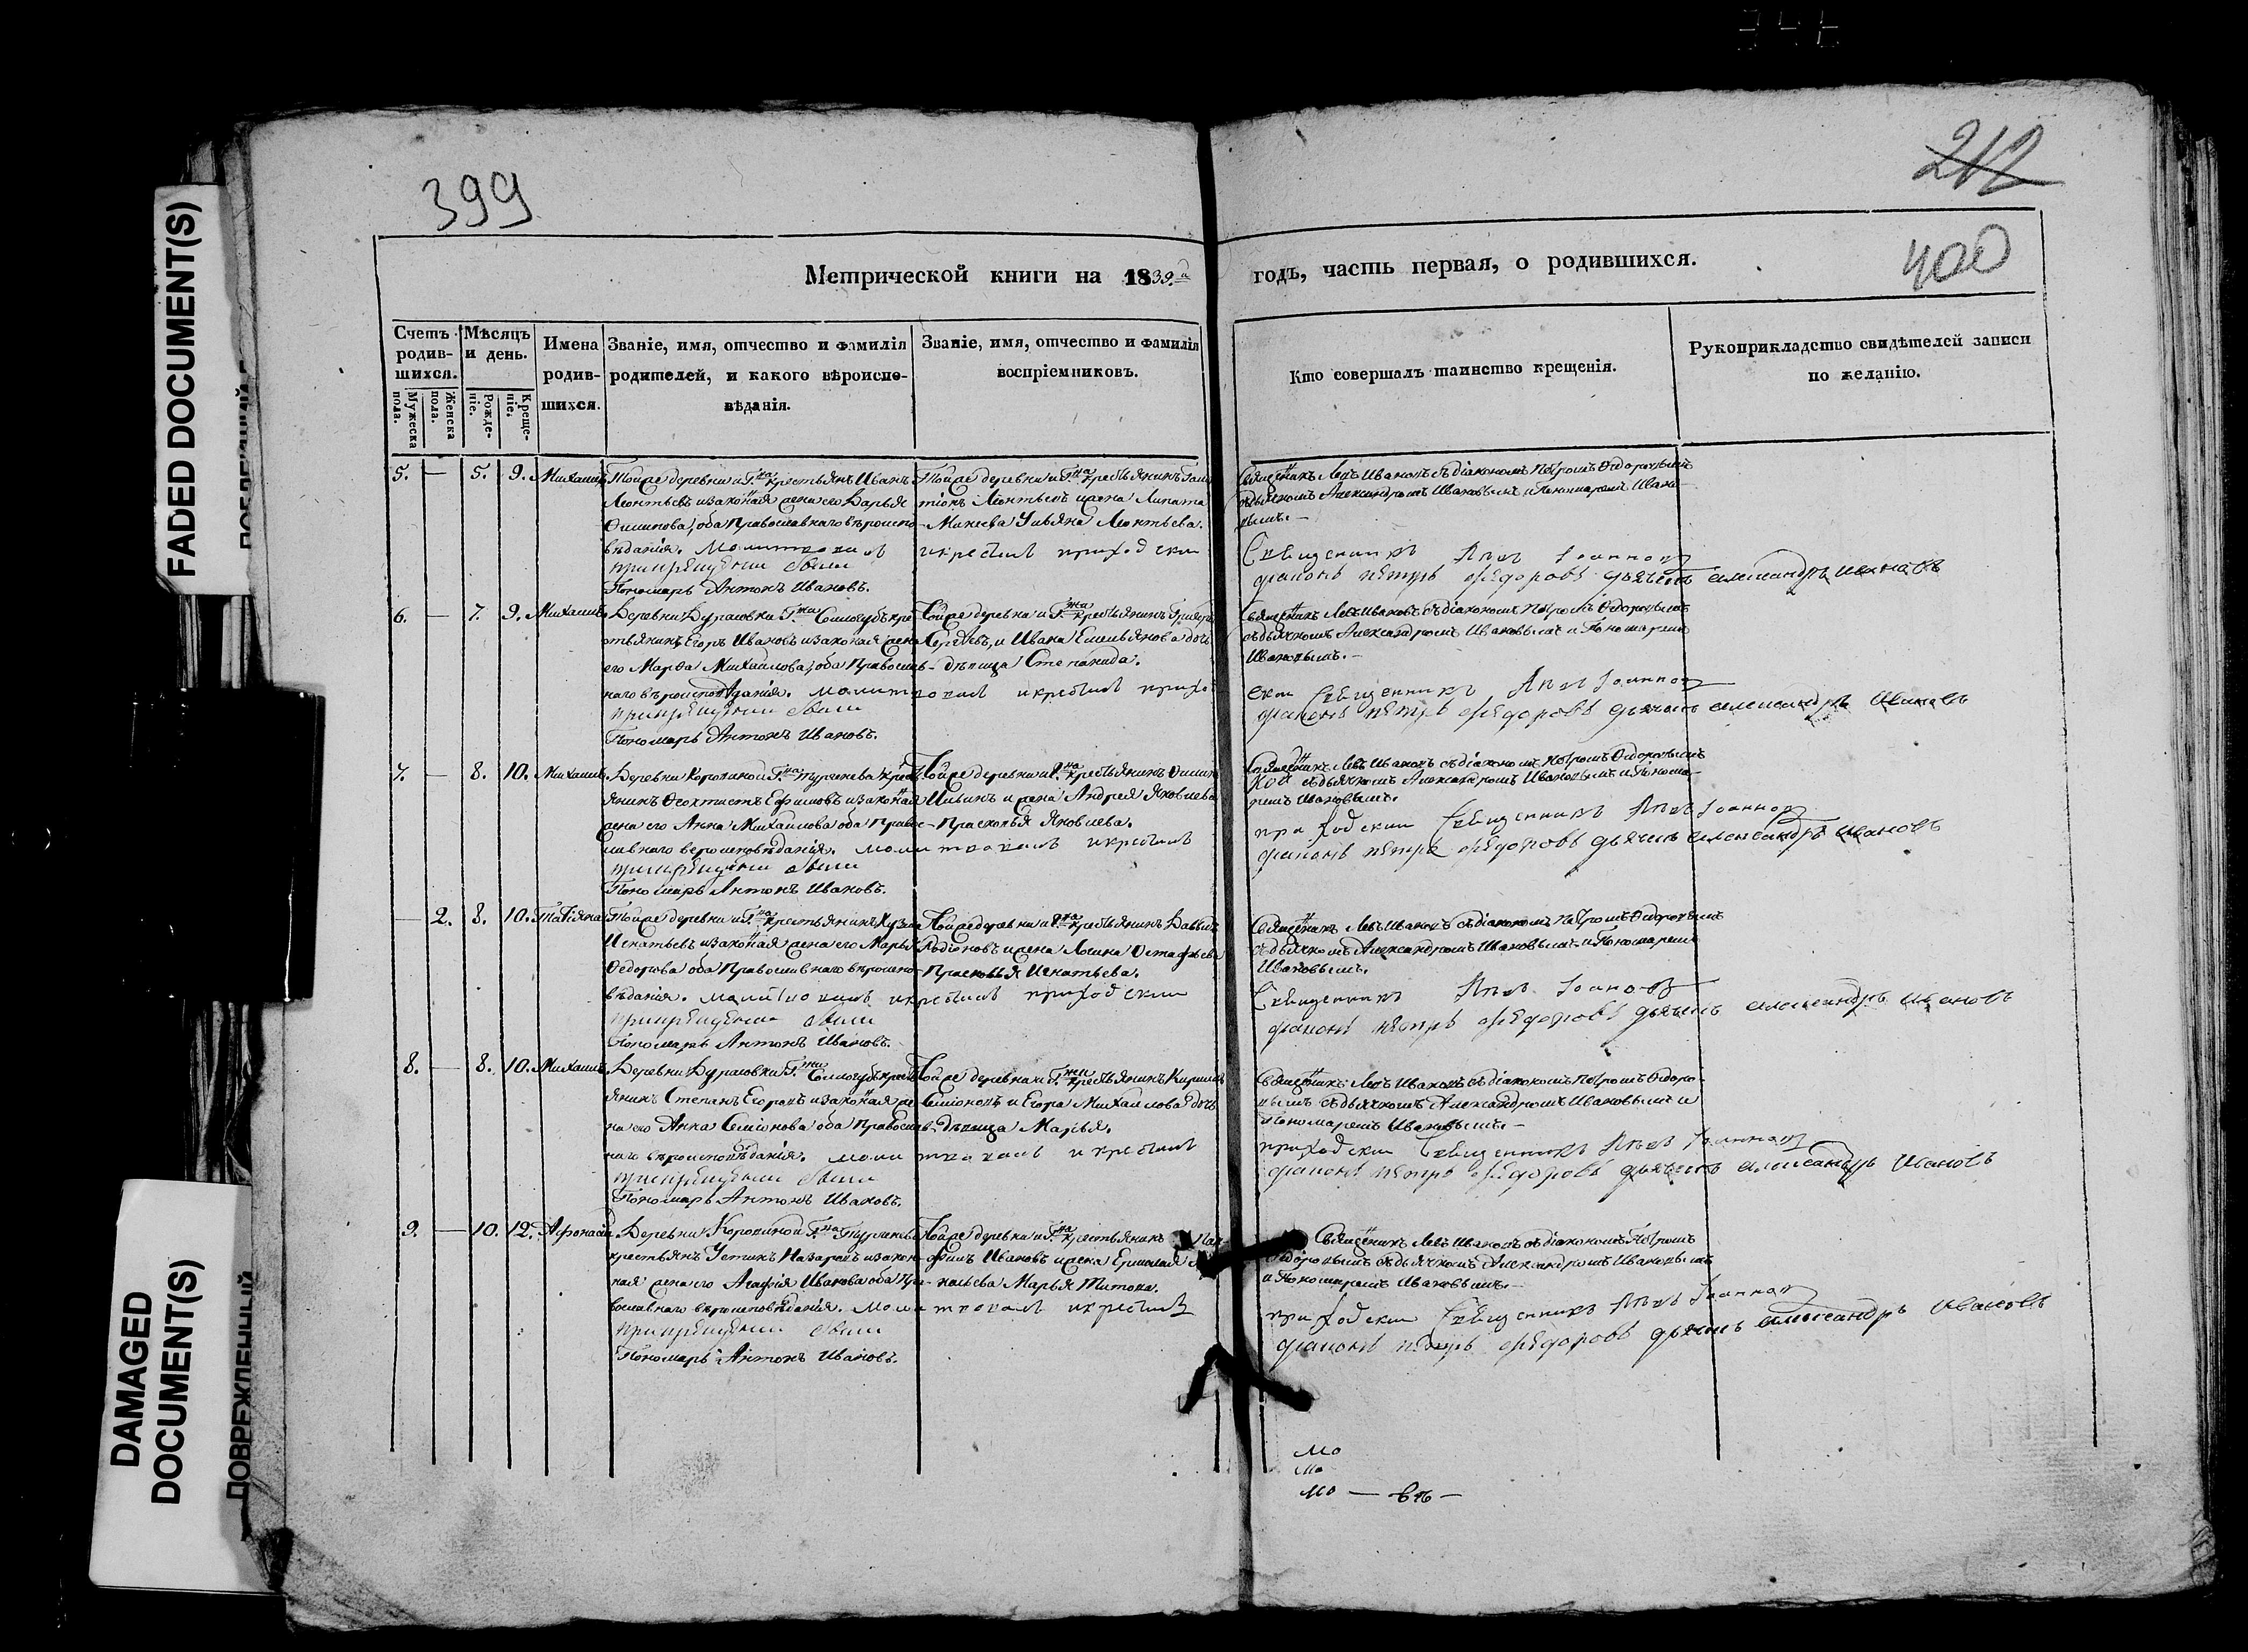 FADED DOCUMENT(S)
DAMAGED
DOCUMENT(S)
ПОВРЕЖДЕННЫЙ
399
212
400
Метрической книги на 1839.й годъ, часть первая, о родившихся.
Счетъ родив-шихся.
Мужеска пола.
Женска пола.
Мѣсяцъ и день.
Рожде-ніе.
Креще-ніе.
Имена родив-шихся.
Званіе, имя, отчество и фамилія родителей, и какого вѣроиспо-вѣданія.
Званіе, имя, отчество и фамилія воспріемниковъ.
Кто совершалъ таинство крещенія.
Рукоприкладство свидѣтелей записи по желанію.
5. — 5. 9. Михаилъ
Тойже деревни и Г.на крестьянъ Иванъ
Леонтьевъ и законая жена его Дарья
Филипова, оба Православнаго вѣроиспо-
вѣданія. Молитвовалъ и крестилъ приходскии
при крещении были
Пономарь Антонъ Ивановъ.
Тойже деревни и Г.на крестьянинъ
Леонтьевъ и жена Липата
Михеева Ульяна Леонтьева.
Священикъ Левъ Ивановъ съ діакономъ Петромъ Федоровымъ
съ дьячкомъ Александромъ Ивановымъ и Пономаремъ Ивано-
вымъ.—
Священникъ Левъ Іоанновъ
диаконъ петръ федоровъ дьячекъ александръ ивановъ
6. — 7. 9. Михаилъ.
Деревни Г.жи Сологубъ кре-
стьянинъ Егоръ Ивановъ и законая жена
его Марѳа Михайлова, оба Правосла-
внаго вѣроисповѣданія. молитвовалъ и крестилъ прихо
при крещении были
Пономарь Антонъ Ивановъ.
Тойже деревни и Г.жи крестьянинъ Григорій
Сергѣевъ, и Ивана Емельянова дочь
дѣвица Степанида.
Священикъ Левъ Ивановъ съ діакономъ Петромъ Федоровымъ
съ дьячкомъ Александромъ Ивановымъ и Пономаремъ
Ивановымъ.—
скии Священникъ Левъ Іоанновъ
диаконъ петръ федоровъ дьячекъ александръ ивановъ
7. — 8. 10. Михаилъ.
Деревни Коровиной Г.на Тургенева крест
янинъ Ѳеоктистъ Ефимовъ и законая
жена его Анна Михайлова оба Право-
славнаго вероисповѣданія. молитвовалъ и крестилъ
при крещении были
Пономарь Антонъ Ивановъ.
Тойже деревни и Г.на крестьянинъ
Ильинъ и жена Андрея Яковлева
Прасковья Яковлева.
Священикъ Левъ Ивановъ съ діакономъ Петромъ Федоровымъ
съ дьячкомъ Александромъ Ивановымъ и Понома-
ремъ Ивановымъ.
приходскии Священникъ Левъ Іоанновъ
диаконъ петръ федоровъ дьячекъ александръ ивановъ
— 2. 8. 10. Татіяна
Тойже деревни и Г.на крестьянинъ
Игнатьевъ и законая жена его Марья
Федорова оба Православнаго вѣроиспо-
вѣданія. молитвовалъ и крестилъ приходскии
при крещении были
Пономарь Антонъ Ивановъ.
Тойже деревни и Г.на крестьянинъ Давыдъ
Родіоновъ и жена Логина Остафьева
Прасковья Игнатьева.
Священикъ Левъ Ивановъ съ діакономъ Петромъ Федоровымъ
съ дьячкомъ Александромъ Ивановымъ и Пономаремъ
Ивановымъ.
Священникъ Левъ Іоанновъ
диаконъ петръ федоровъ дьячекъ александръ ивановъ
8. — 8. 10. Михаилъ.
Деревни Г.жи Сологубъ крестъ
янинъ Степанъ Егоровъ и законая же-
на его Анна Семіонова оба Правосла-
внаго вѣроисповѣданія. молитвовалъ и крестилъ
при крещении были
Пономарь Антонъ Ивановъ.
Тойже деревни и Г.жи крестьянинъ Кирила
Семіоновъ и Егора Михайлова дочь
дѣвица Марья.
Священикъ Левъ Ивановъ съ діакономъ Петромъ Федоро-
вымъ съ дьячкомъ Александромъ Ивановымъ и
Пономаремъ Ивановымъ.—
приходскии Священникъ Левъ Іоанновъ
диаконъ петръ федоровъ дьячекъ александръ ивановъ
9. — 10. 12. Афонасій
Деревни Коровиной Г.на Тургенева
крестьянъ Устинъ Назаровъ и закон-
ная жена его Агафія Иванова оба Пра-
вославнаго вѣроисповѣданія. молитвовалъ и крестилъ
при крещении были
Пономарь Антонъ Ивановъ.
Тойже деревни и Г.на крестьянинъ
Ивановъ и жена Ермолая
Марья Титова.
Священикъ Левъ Ивановъ съ діакономъ Петромъ
Федоровымъ съ дьячкомъ Александромъ Ивановымъ
и Пономаремъ Ивановымъ.—
приходскии Священникъ Левъ Іоанновъ
диаконъ петръ федоровъ дьячекъ александръ ивановъ
мо
мо
мо — въ —